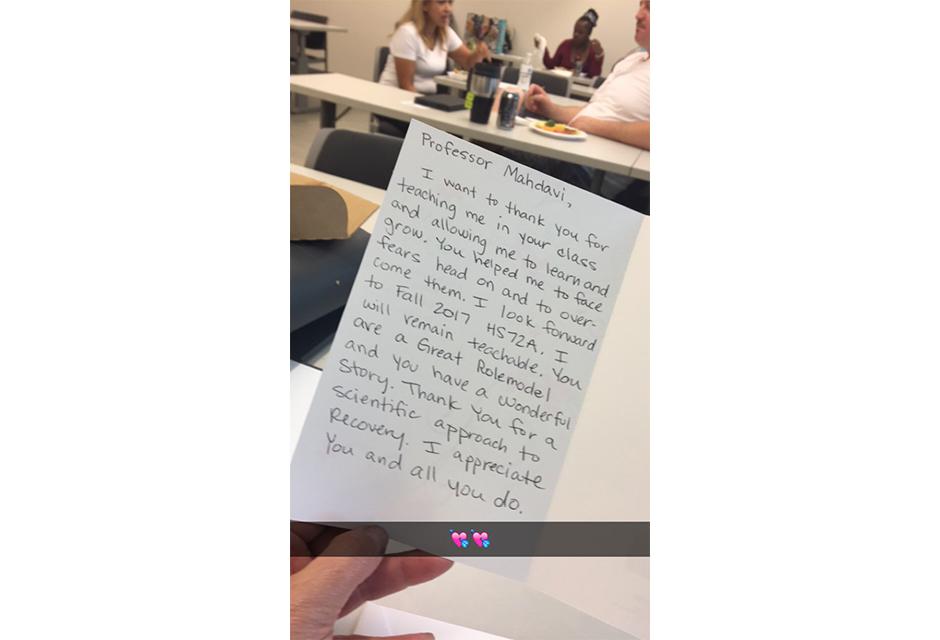 Professor Mahdavi,
I want to thank you for
teaching me in your class
and allowing me to learn and
grow. You helped me to face
fears head on and to over-
come them. I look forward
to Fall 2017 HS72A. I
will remain teachable. You
are a Great Rolemodel
and you have a wonderful
Story. Thank You for a
scientific approach to
Recovery. I appreciate
You and all you do.
💘💘